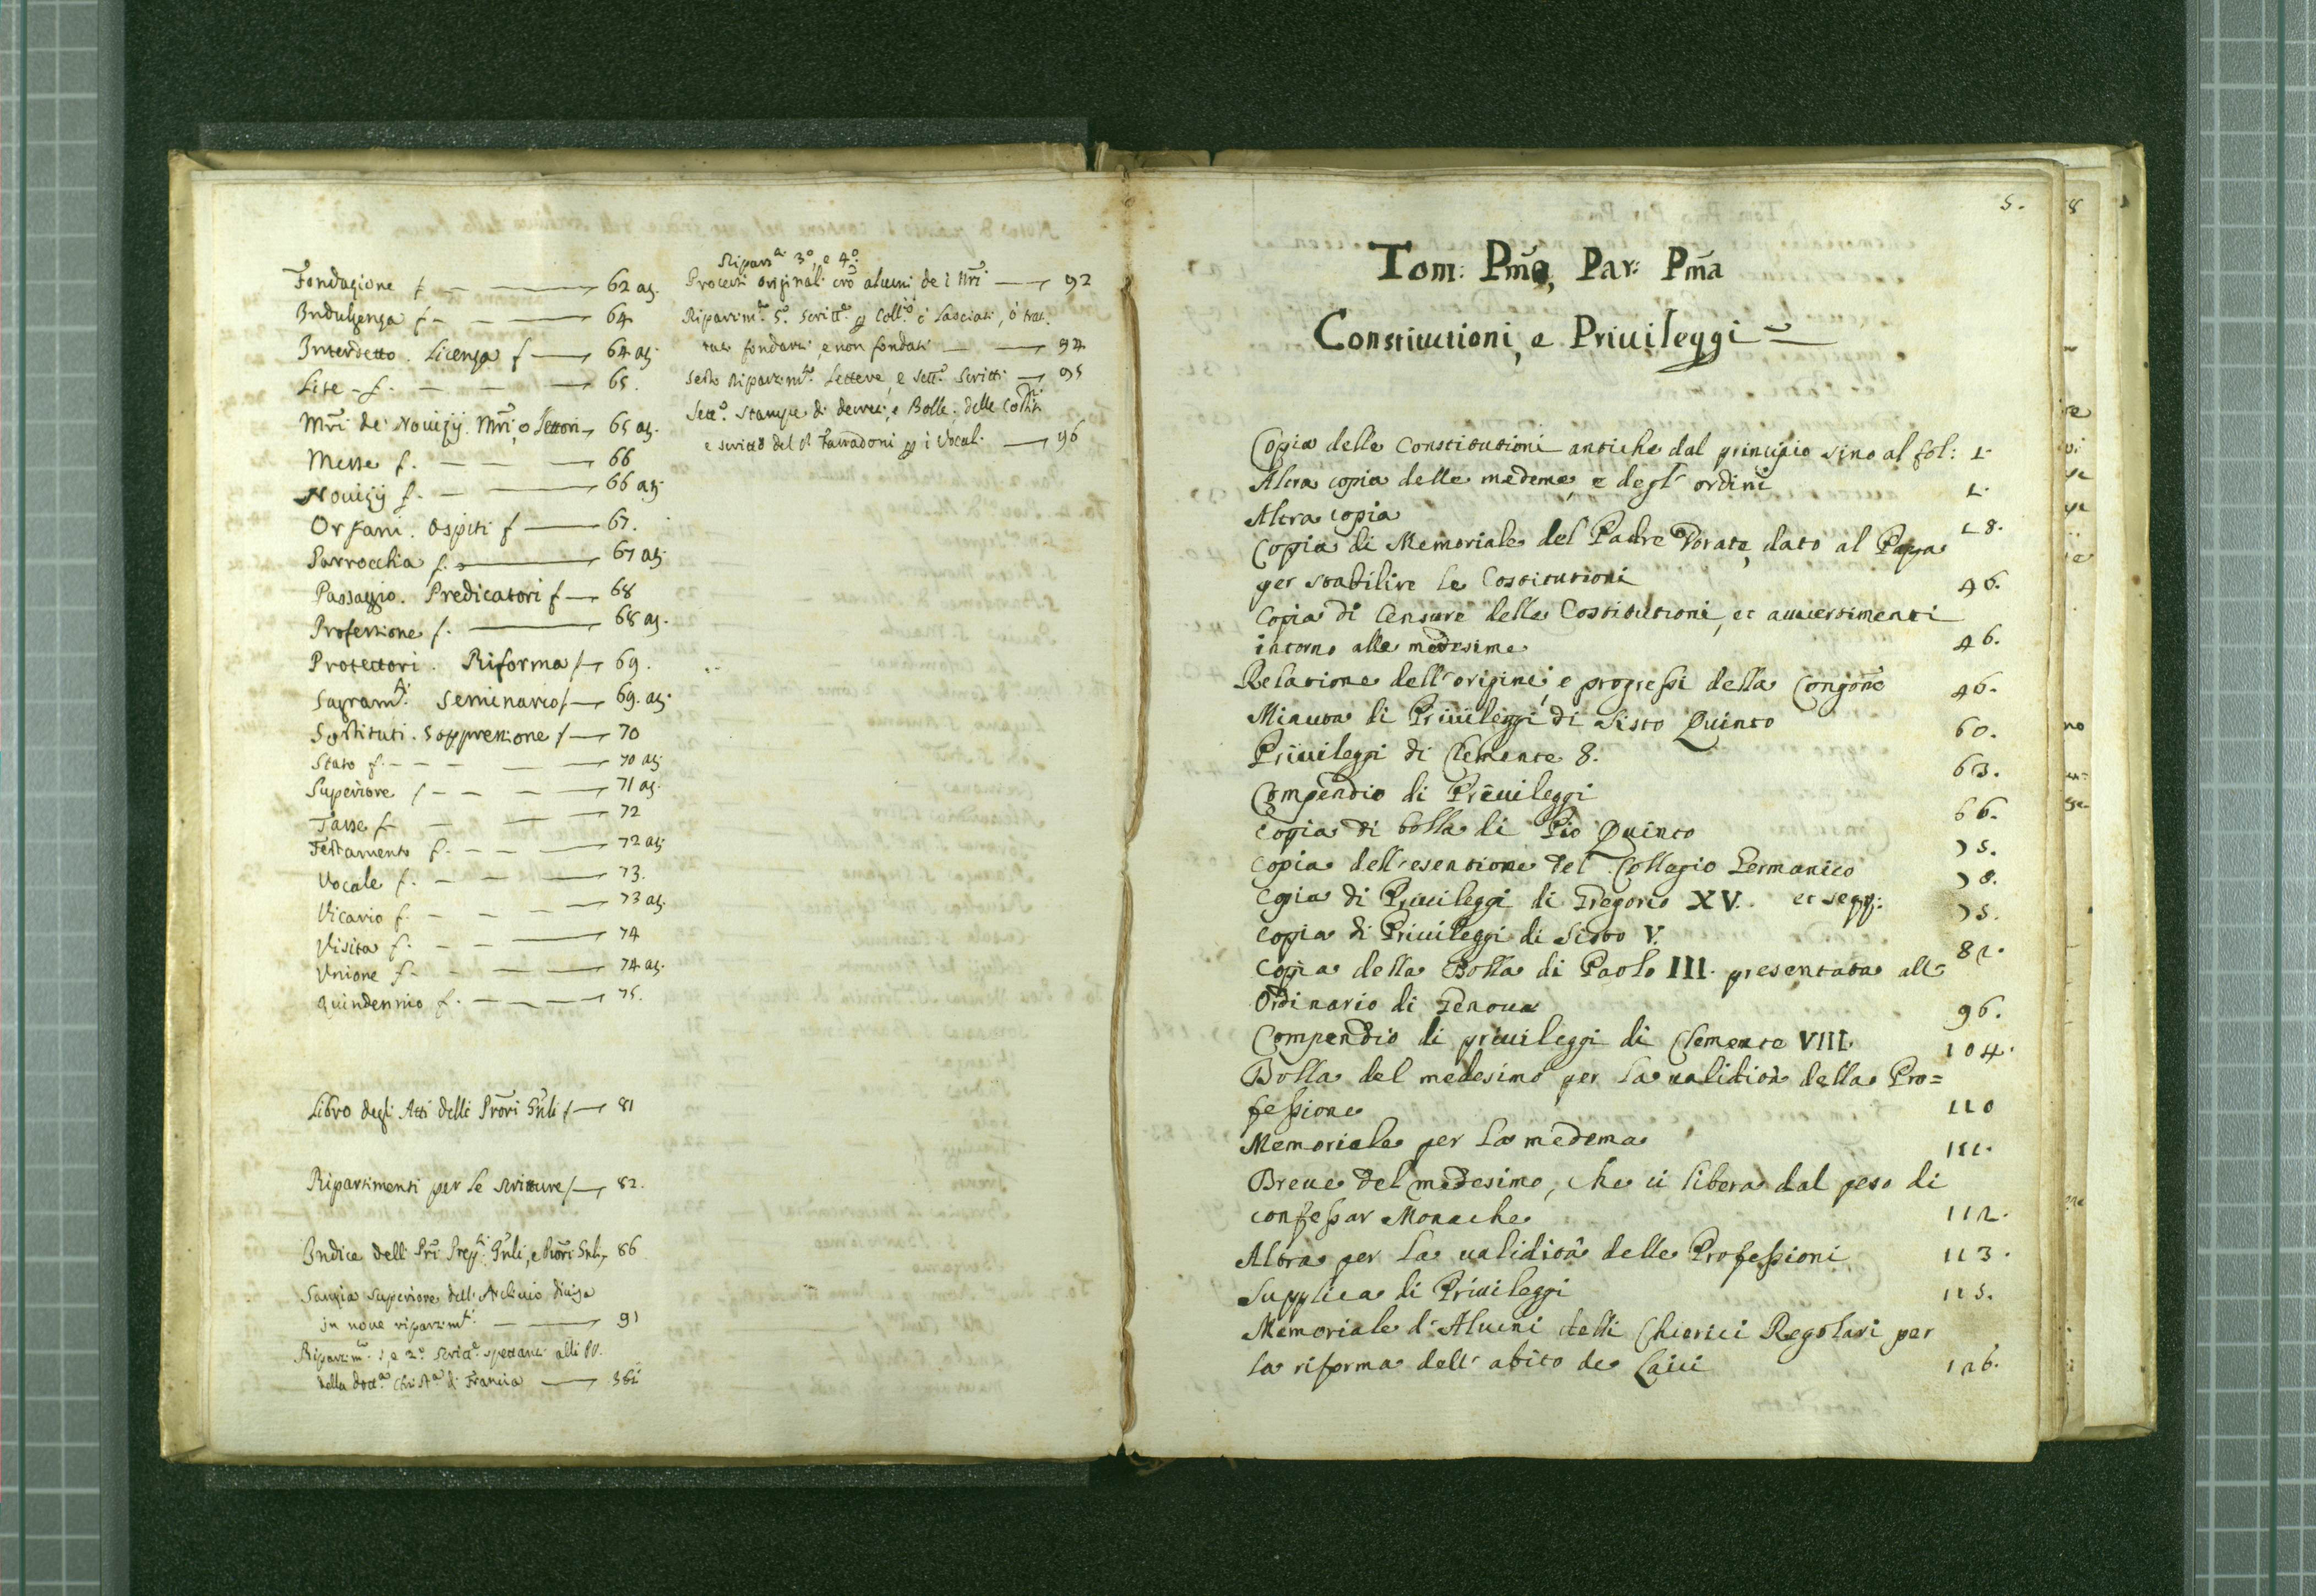 Fondazione f — — 62 ag.
Indulgenza f — — 64
Interdetto. Licenza f — 64 ag.
Lite - f. — — 65.
Mri de Nouizij. Mri, o Lettori 65 ag.
Messe f. — — 66
Nouizij f. — 66 ag.
Orfani. Ospiti f — 67.
Parrocchia f. — 67 ag.
Passaggio. Predicatori f — 68
Professione f. — 68 ag.
Protettori. Riforma f — 69.
Sagramti. Seminario f — 69. ag.
Sostituti. Soppressione f — 70
Stato f. — — — 70 ag.
Superiore f — — — 71 ag.
Tasse f — — 72
Testamento f. — — 72 ag.
Vocale f. — — 73.
Vicario f. — — 73 ag.
Visita f. — — 74
Vnione f. — — 74 ag.
Quindennio f. — — 75.
Libro degli Atti delli Prori Gnli f — 81
Ripartimenti per le scritture f — 82.
Indice delli Pri Prepti Gnli, e Prori Gnli 86
superiore dell' Archiuio diuisa
in noue ripartimti — 91
Ripartimto 1, e 2o scritte spettanti alli PP.
della Dotta Christa di Francia —
Ripartti 3o, e 4o.
Processi originali alcuni de i Nri — 92
Ripartimto 5o. Scritte p Collo. lasciati, ò trat-
tati fondarsi, e non fondati — 94
Sesto Ripartimto. Lettere, e Sette Scritti — 95
Setto. Stampe di decreti, e Bolle, delle Costni
e scritto del P. p i Vocali — 96
5.
Tom: Pmo, Par: Pma
Constitutioni, e Priuileggi =
Copia delle Constitutioni antiche dal principio sino al fol: 1.
Altra copia delle medeme, e degl' ordini 1.
Altra copia 18.
Copia di Memoriale del Padre Dorate, dato al Papa
per stabilire le Costitutioni 46.
Copia di Censure delle Costitutioni, et auuertimenti
intorno alle medesime 46.
Relatione dell' origine, e progressi della Congone 46.
Minuta di Priuileggi di Sisto Quinto 60.
Priuileggi di Clemente 8. 63.
Compendio di Priuileggi 66.
Copia di bolla di Pio Quinto 75.
Copia dell' esentione del Collegio Germanico 78.
Copia di Priuileggi di Gregorio XV. et seqq: 75.
Copia di Priuileggi di Sisto V. 82.
Copia della Bolla di Paolo III. presentata all'
Ordinario di Genoua 96.
Compendio di priuileggi di Clemente VIII. 104.
Bolla del medesimo per la ualidità della Pro=
fessione 110
Memoriale per la medema 111.
Breue del medesimo, che ci libera dal peso di
confessar Monache 112.
Altra per la ualidità delle Professioni 113.
Supplica di Priuileggi 115.
Memoriale d'Alcuni delli Chierici Regolari per
la riforma dell' abito de Laici 126.